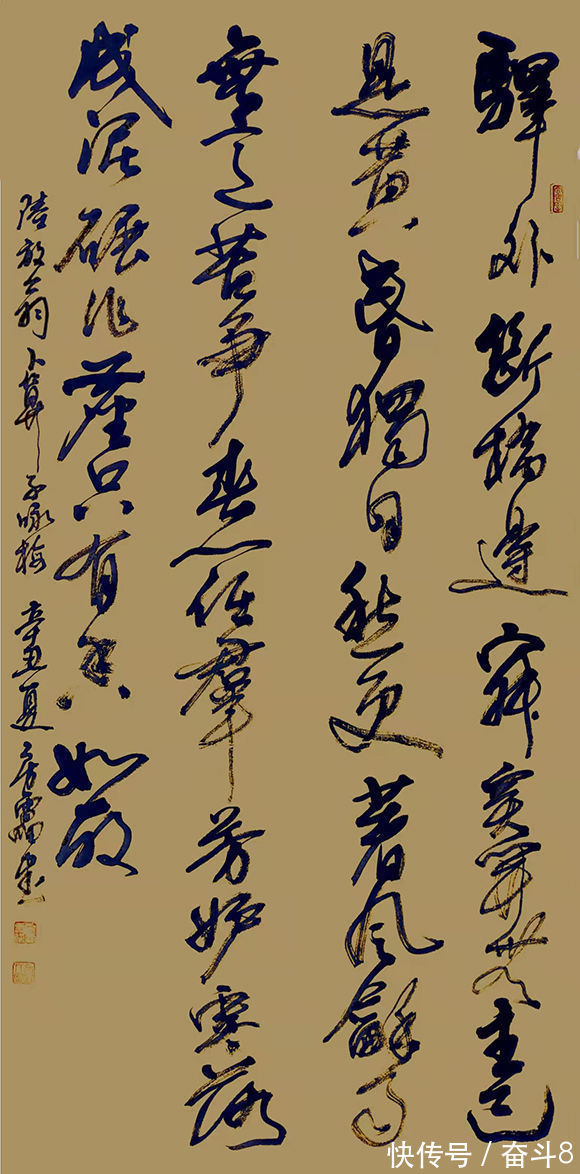 驛外斷橋邊寂寞開無主已
是黄昏獨自愁更著風龢雨
無意苦爭春一任羣芳妒零落
成泥碾作塵只有香如故
陸放翁卜算子咏梅 辛丑夏
快传号 / 奋斗8